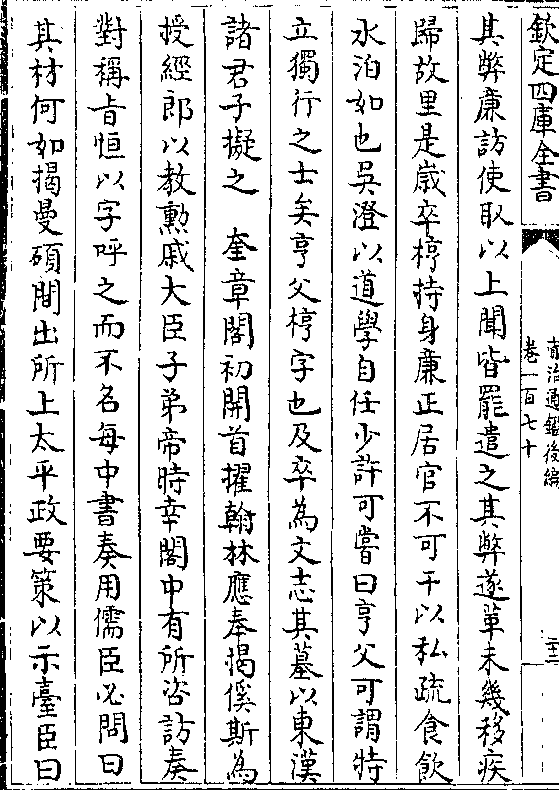 欽定四庫全書
資治通鑑後編
卷一百七十
二十二
其弊亷訪使取以上聞皆罷遣之其弊遂革未幾移疾
歸故里是歳卒㮚持身亷正居官不可干以私疏食飲
水泊如也吳澄以道學自任少許可嘗曰亨父可謂特
立獨行之士矣亨父㮚字也及卒為文志其墓以東漢
諸君子擬之　奎章閣初開首擢翰林應奉揭傒斯為
授經郎以教勲戚大臣子弟帝時幸閣中有所咨訪奏
對稱㫖恒以字呼之而不名每中書奏用儒臣必問曰
其材何如揭曼碩間出所上太平政要策以示臺臣曰